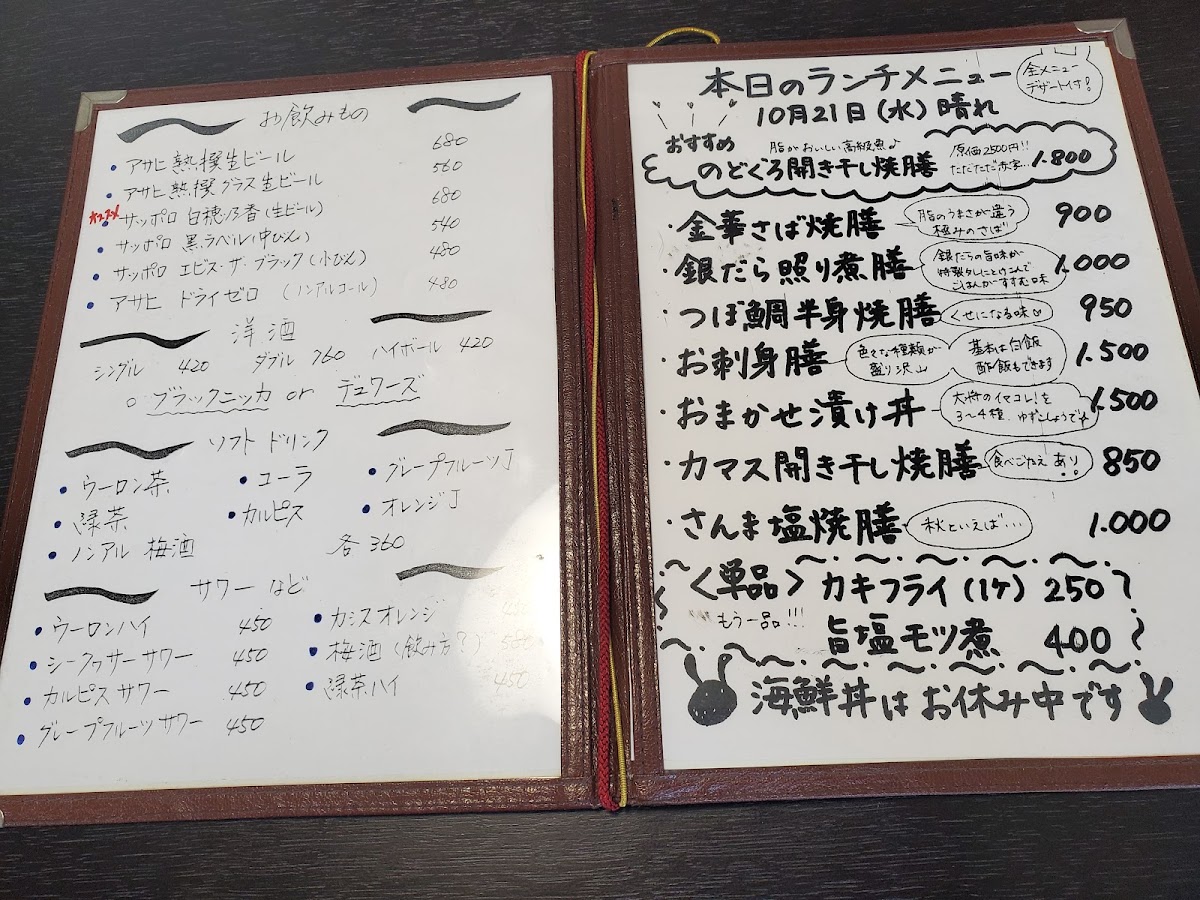 お飲みもの
・アサヒ 熟撰生ビール 680
・アサヒ 熟撰グラス生ビール 560
オススメ ・サッポロ 白穂乃香(生ビール) 680
・サッポロ 黒ラベル(中びん) 540
・サッポロ エビス・ザ・ブラック(小びん) 480
・アサヒ ドライゼロ (ノンアルコール) 480
洋酒
シングル 420 ダブル 760 ハイボール 420
○ ブラックニッカ or デュワーズ
ソフトドリンク
・ウーロン茶 ・コーラ ・グレープフルーツJ
・緑茶 ・カルピス ・オレンジJ
・ノンアル 梅酒 各360
サワーなど
・ウーロンハイ 450 ・カシスオレンジ 450
・シークヮサーサワー 450 ・梅酒(飲み方?) 580
・カルピスサワー 450 ・緑茶ハイ 450
・グレープフルーツサワー 450
本日のランチメニュー
全メニュー
デザート付!
10月21日(水) 晴れ
おすすめ
脂がおいしい高級魚♪
のどぐろ開き干し焼膳
原価2500円!!
ただただ赤字…
1.800
・金華さば焼膳
脂のうまさが違う
極みのさば
900
・銀だら照り煮膳
銀だらの旨味が
特製タレにとけこんで
ごはんがすすむ味
1.000
・つぼ鯛半身焼膳
くせになる味
950
・お刺身膳
色々な種類が
盛り沢山
基本は白飯
酢飯もできます
1.500
・おまかせ漬け丼
大将のイマコレ!を
3〜4種、ゆずこしょうで
1.500
・カマス開き干し焼膳
食べごたえあり!!
850
・さんま塩焼膳
秋といえば…
1.000
<単品> カキフライ(1ケ) 250
もう一品!!!
旨塩モツ煮 400
海鮮丼はお休み中です